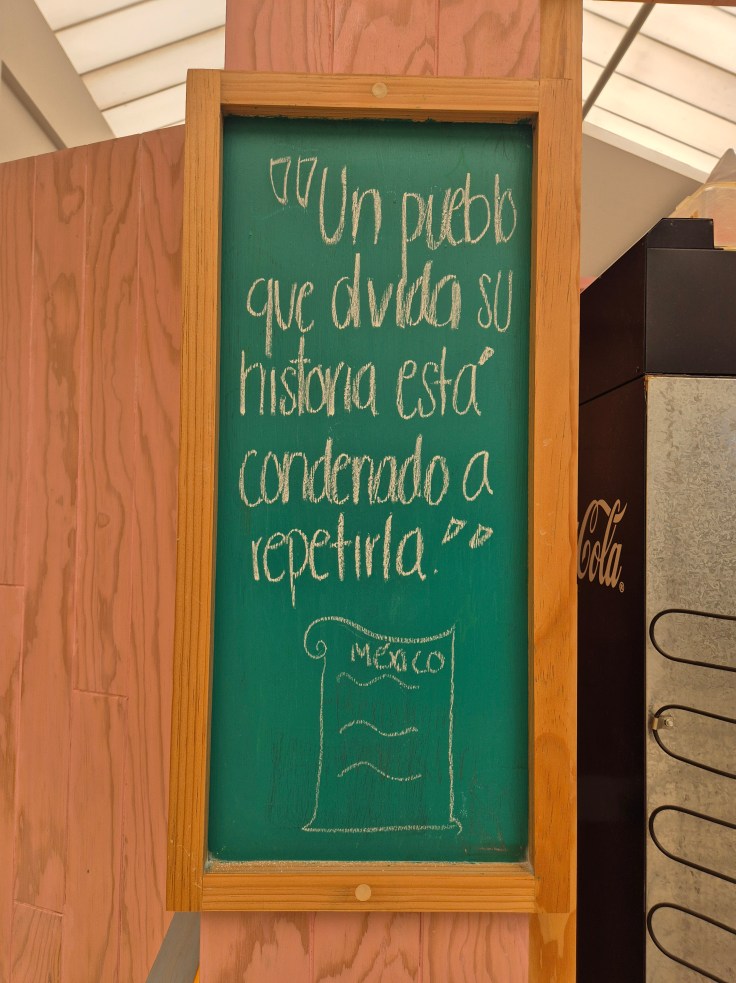 "Un pueblo
que olvida su
historia está
condenado a
repetirla."
México
Cola